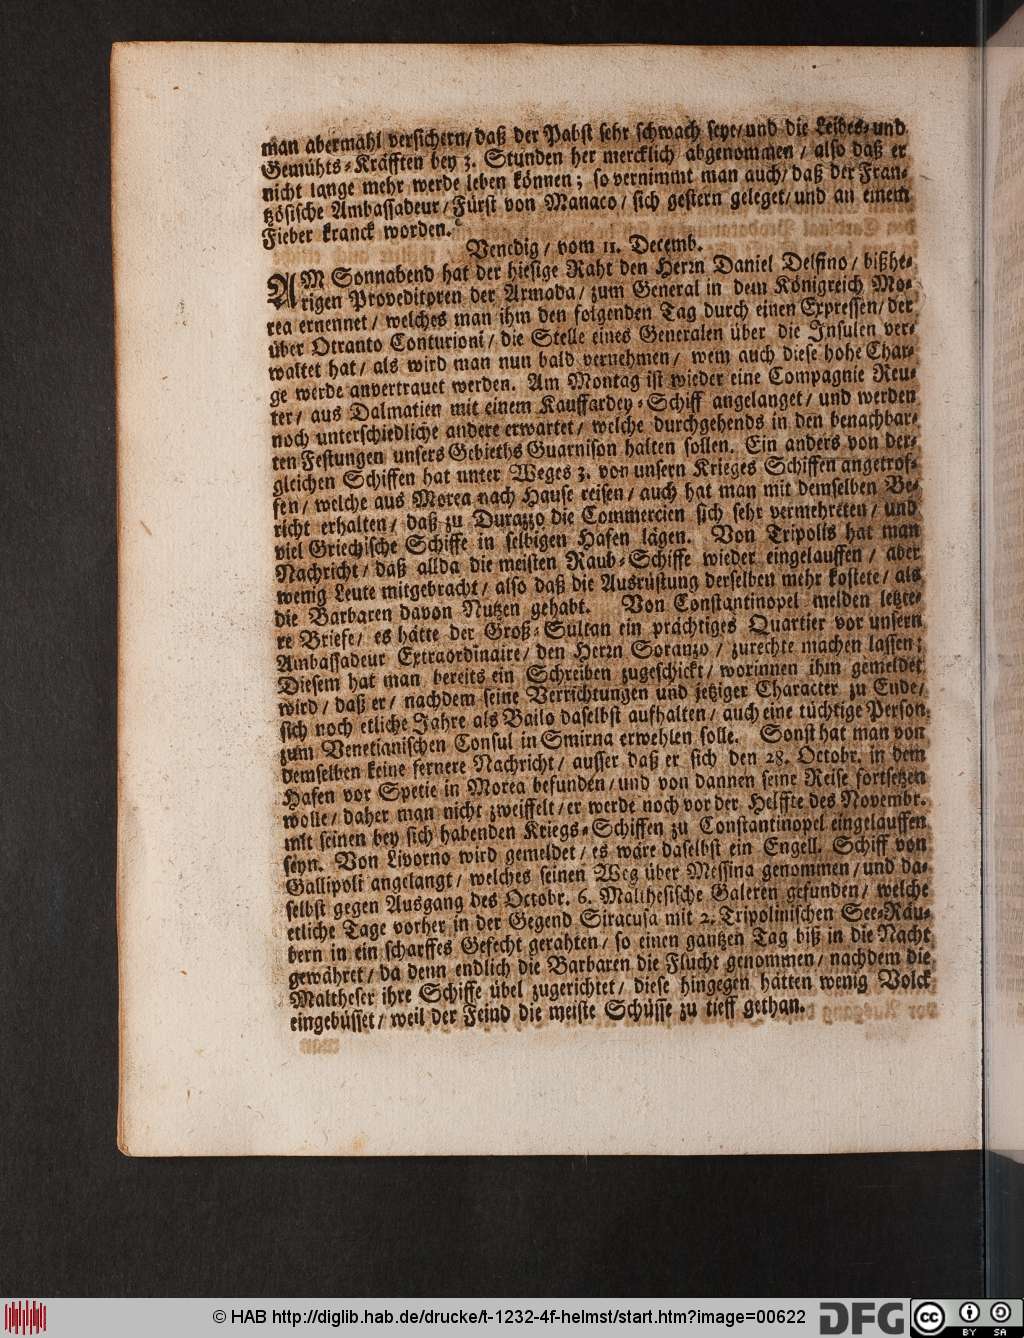 man abermahl versichern/ daß der Pabst sehr schwach seye/ und die Leibes- und
Gemühts-Kräfften bey 3. Stunden her mercklich abgenommen / also daß er
nicht lange mehr werde leben können; so vernimmt man auch/ daß der Fran-
tzösische Ambassadeur / Fürst von Manaco / sich gestern geleget/ und an einem
Fieber kranck worden.
Venedig / vom 11. Decemb.
AM Sonnabend hat der hiesige Raht den Herrn Daniel Delfino / bißhe-
rigen Proveditoren der Armada / zum General in dem Königreich Mo-
rea ernennet / welches man ihm den folgenden Tag durch einen Expressen/ der
über Otranto Conturioni / die Stelle eines Generalen über die Insulen ver-
waltet hat / als wird man nun bald vernehmen / wem auch diese hohe Char-
ge werde anvertrauet werden. Am Montag ist wieder eine Compagnie Reu-
ter / aus Dalmatien mit einem Kauffardey-Schiff angelanget / und werden
noch unterschiedliche andere erwartet / welche durchgehends in den benachbar-
ten Festungen unsers Gebieths Guarnison halten sollen. Ein anders von der-
gleichen Schiffen hat unter Weges 3. von unsern Krieges Schiffen angetrof-
fen / welche aus Morea nach Hause reisen / auch hat man mit demselben Be-
richt erhalten / daß zu Durazzo die Commercien sich sehr vermehreten / und
viel Griechische Schiffe in selbigen Hafen lägen. Von Tripolis hat man
Nachricht / daß allda die meisten Raub-Schiffe wieder eingelauffen / aber
wenig Leute mitgebracht / also daß die Ausrüstung derselben mehr kostete / als
die Barbaren davon Nutzen gehabt. Von Constantinopel melden letzte-
re Briefe / es hätte der Groß-Sultan ein prächtiges Quartier vor unsern
Ambassadeur Extraordinaire / den Herrn Soranzo / zurechte machen lassen;
Diesem hat man bereits ein Schreiben zugeschickt / worinnen ihm gemeldet
wird / daß er / nachdem seine Verrichtungen und jetziger Character zu Ende /
sich noch etliche Jahre als Bailo daselbst aufhalten / auch eine tüchtige Person
zum Venetianischen Consul in Smirna erwehlen solle. Sonst hat man von
demselben keine fernere Nachricht / ausser daß er sich den 28. Octobr. in dem
Hafen vor Spetie in Morea befunden / und von dannen seine Reise fortsetzen
wolle / daher man nicht zweiffelt / er werde noch vor der Helffte des Novembr.
mit seinen bey sich habenden Kriegs-Schiffen zu Constantinopel eingelauffen
seyn. Von Livorno wird gemeldet / es wäre daselbst ein Engell. Schiff von
Gallipoli angelangt / welches seinen Weg über Messina genommen / und da-
selbst gegen Ausgang des Octobr. 6. Malthesische Galeren gefunden / welche
etliche Tage vorher in der Gegend Siracusa mit 2. Tripolinischen See-Räu-
bern in ein scharffes Gefecht gerahten / so einen gantzen Tag biß in die Nacht
gewähret / da denn endlich die Barbaren die Flucht genommen / nachdem die
Maltheser ihre Schiffe übel zugerichtet / diese hingegen hätten wenig Volck
eingebüsset / weil der Feind die meiste Schüsse zu tieff gethan.
© HAB http://diglib.hab.de/drucke/t-1232-4f-helmst/start.htm?image=00622
DFG
cc
BY SA